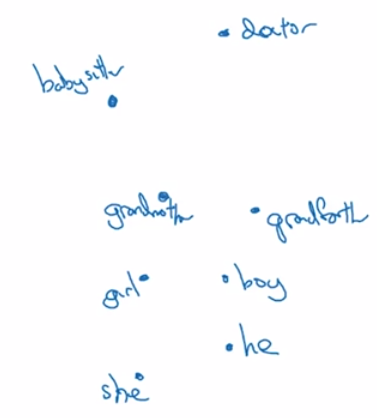 doctor
babysitter
grandmoth
grandfath
girl
boy
he
she